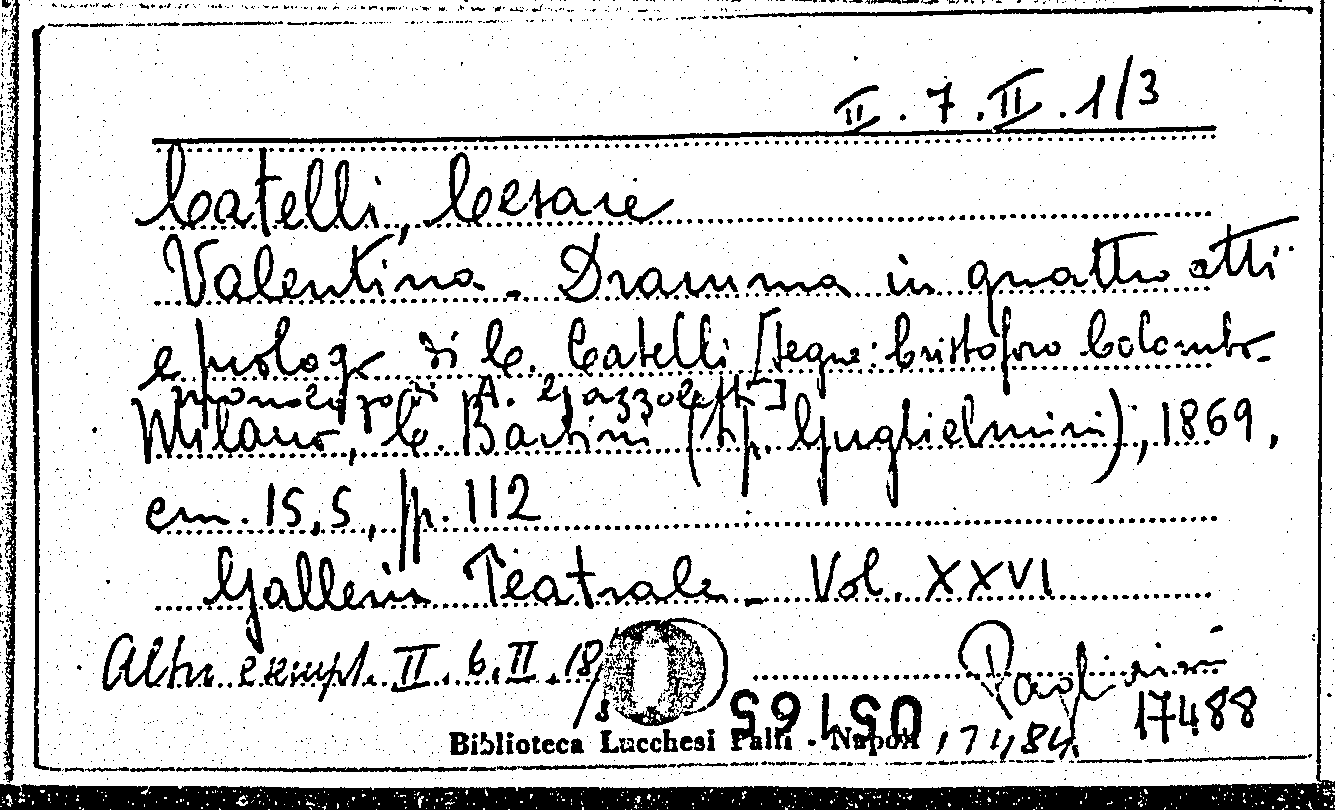 II. 7. II. 1/3
Catelli, Cesare
Valentina. Dramma in quattro atti
e prologo di C. Catelli [segue: Cristoforo Colombo
monologo di A. Gazzoletti]
Milano, C. Barbini (tip. Guglielmini), 1869,
cm. 15,5, pp. 112
Galleria Teatrale - Vol. XXVI
Altro esempl. II. 6. II. 18/
Pagliairani
17488
Biblioteca Lucchesi Palli - Napoli